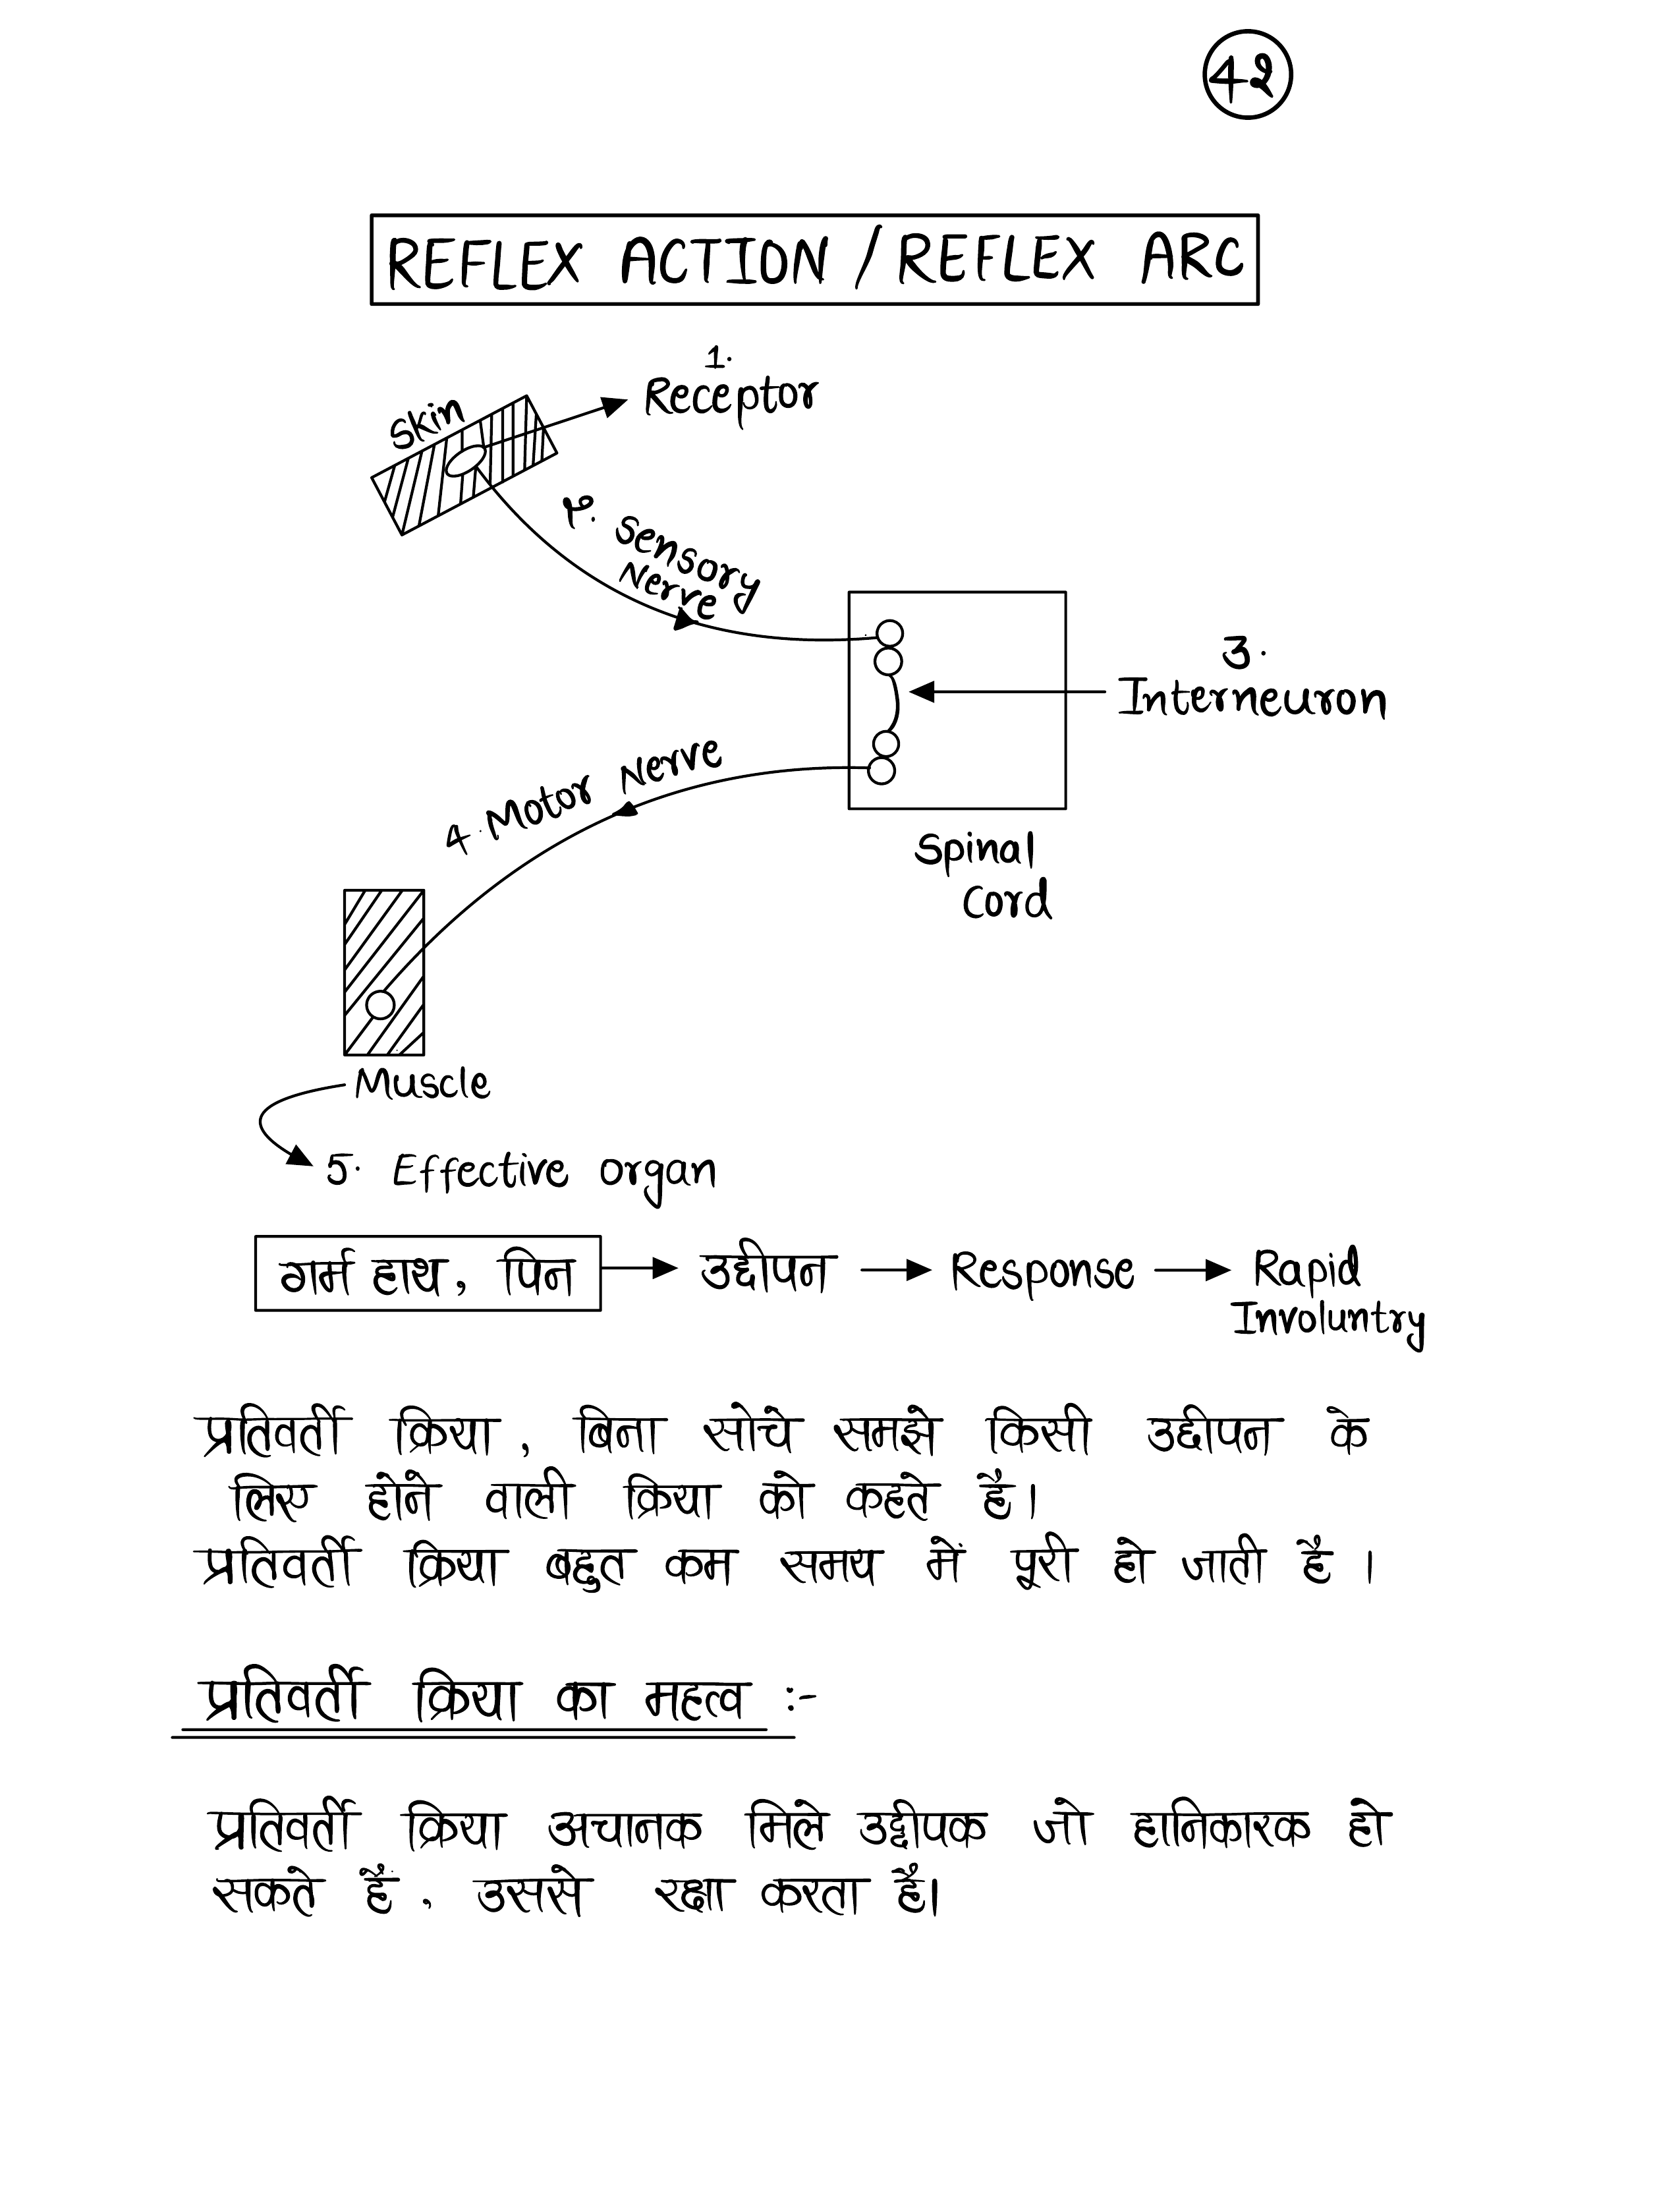 42
REFLEX ACTION / REFLEX ARC
1.
Receptor
Skin
2. Sensory
Nerve
3.
Interneuron
4. Motor Nerve
Spinal
Cord
Muscle
5. Effective organ
गर्म हाथ, पिन → उद्दीपन → Response → Rapid
Involuntry
प्रतिवर्ती क्रिया, बिना सोचे समझे किसी उद्दीपन के
लिए होने वाली क्रिया को कहते हैं।
प्रतिवर्ती क्रिया बहुत कम समय में पूरी हो जाती है।
प्रतिवर्ती क्रिया का महत्व :-
प्रतिवर्ती क्रिया अचानक मिले उद्दीपक जो हानिकारक हो
सकते हैं, उससे रक्षा करता है।